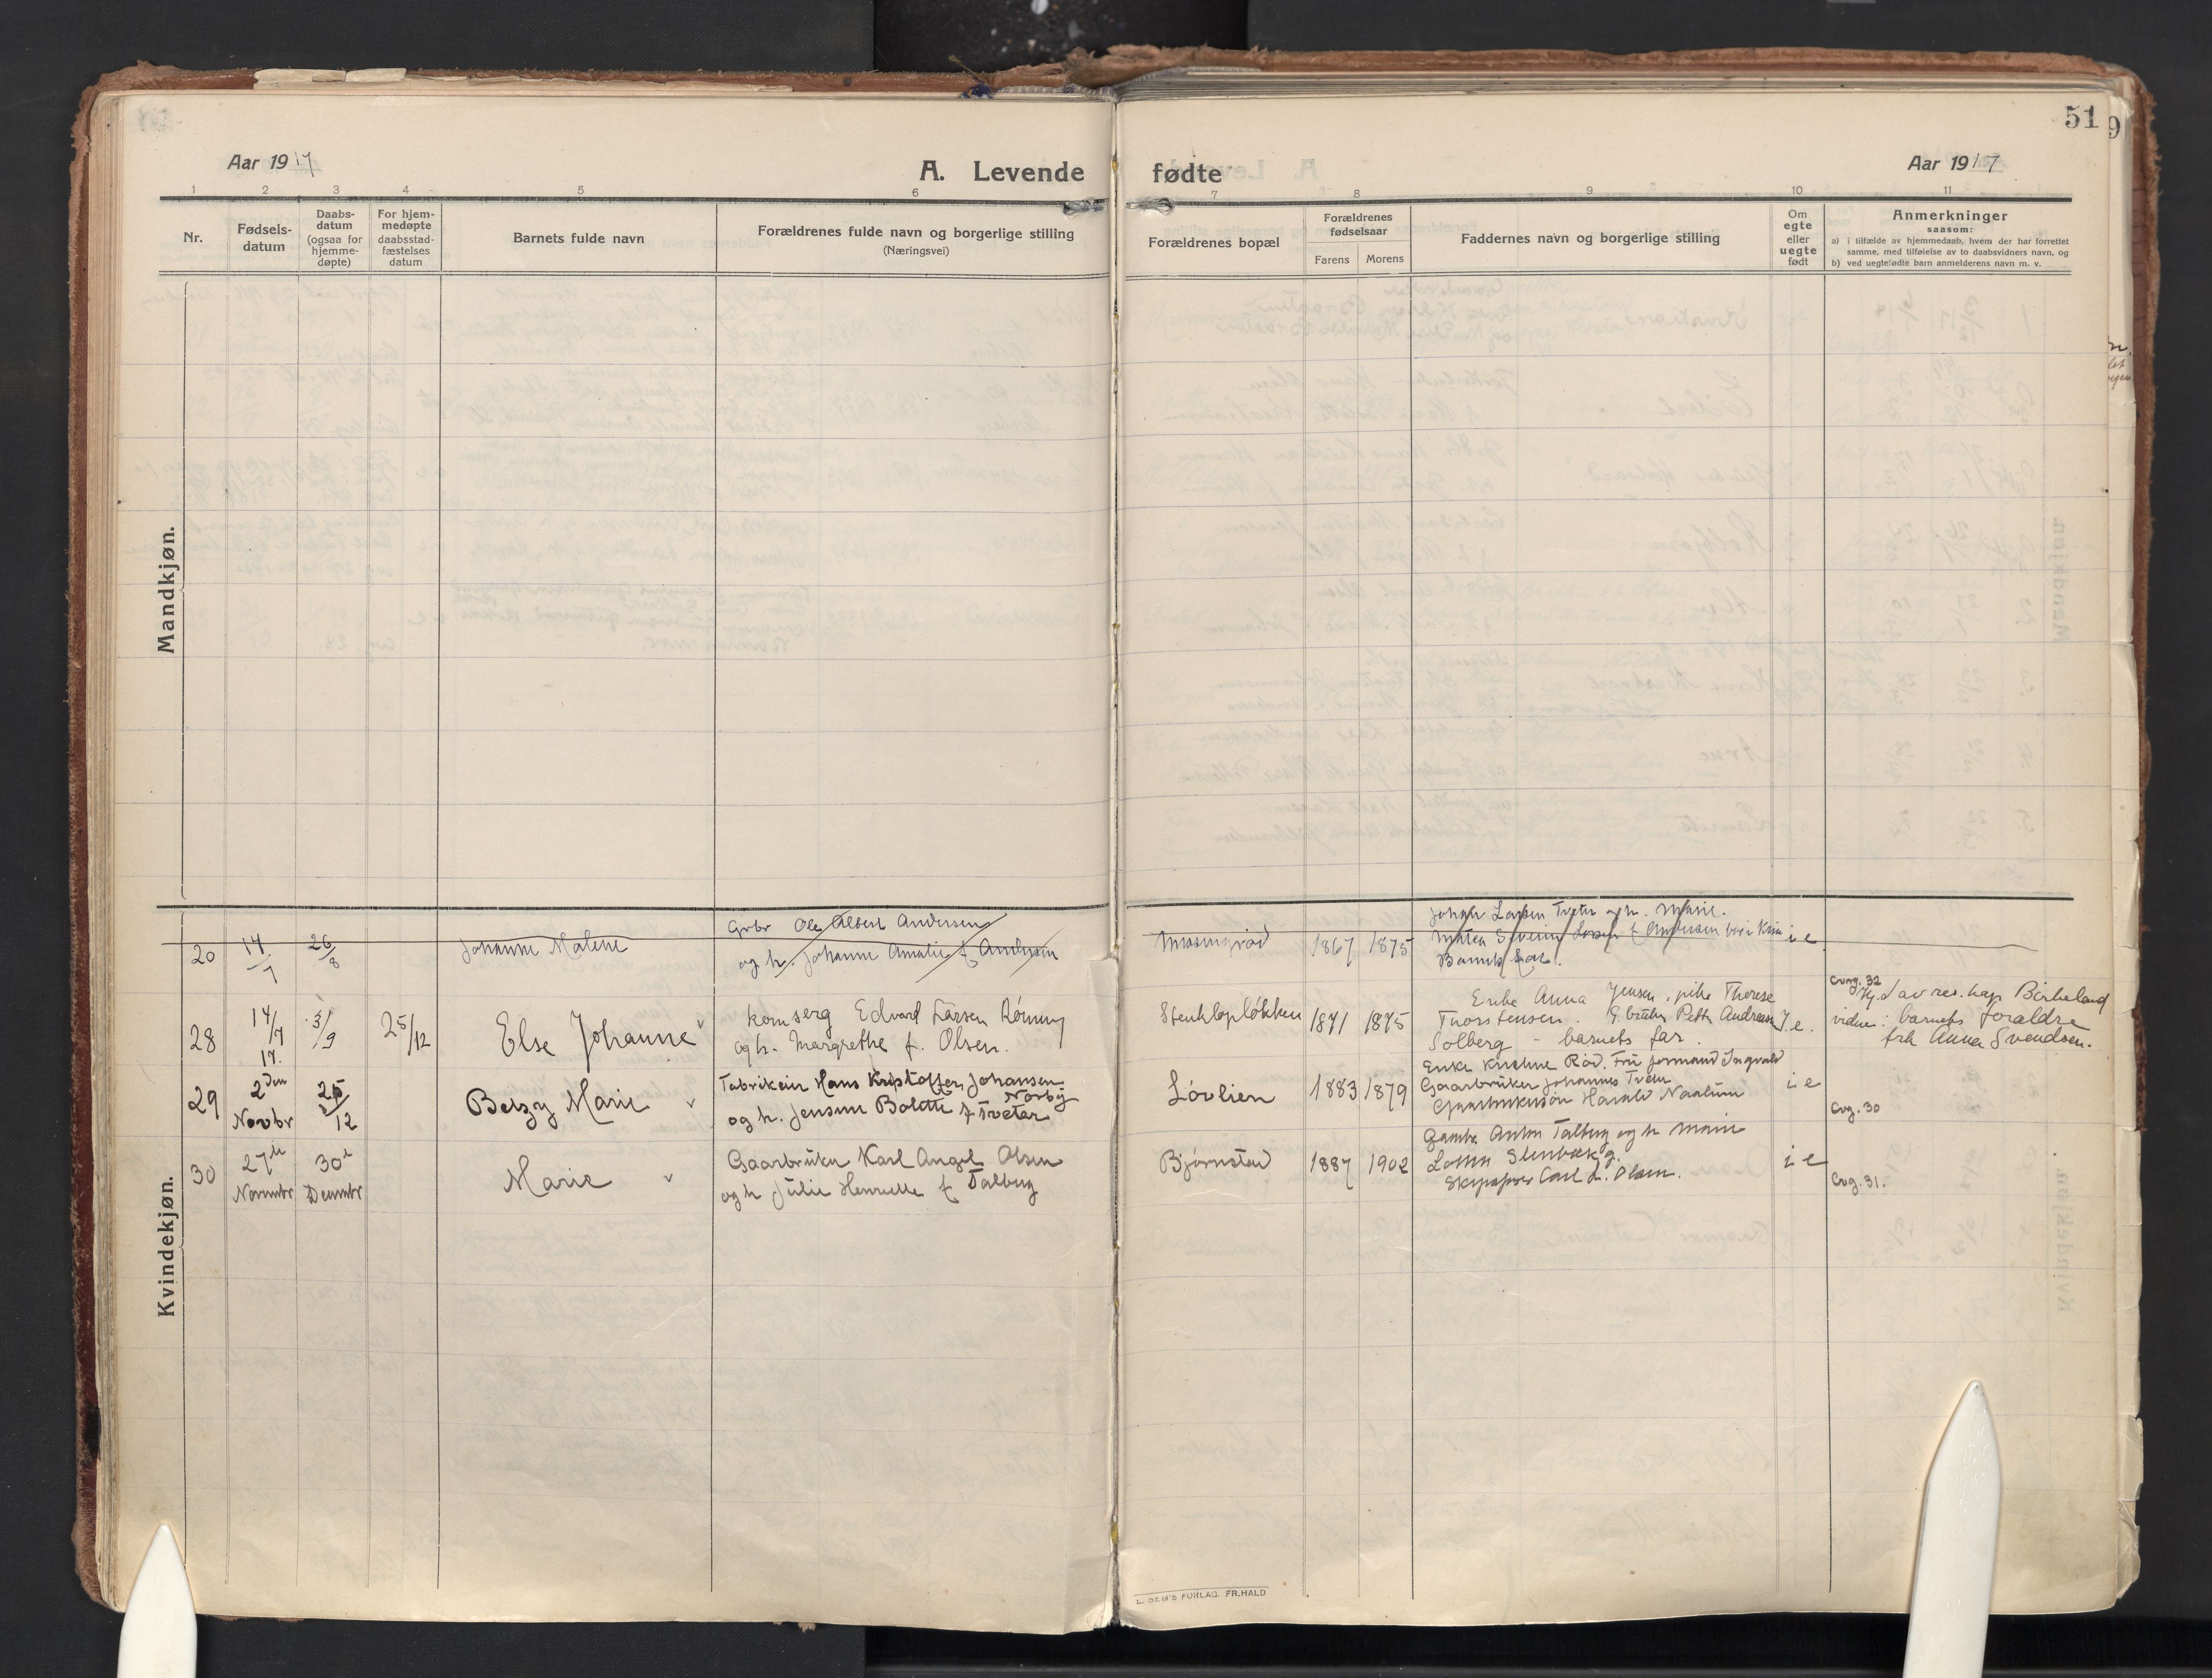 51
9
Aar 1917
A. Levende fødte
Aar 1917
1 2 3 4 5 6 7 8 9 10 11
Nr.
Fødsels-
datum
Daabs-
datum
(ogsaa for
hjemme-
døpte)
For hjem-
medøpte
daabsstad-
fæstelses
datum
Barnets fulde navn
Forældrenes fulde navn og borgerlige stilling
(Næringsvei)
Forældrenes bopæl
Forældrenes
fødselsaar
Farens Morens
Faddernes navn og borgerlige stilling
Om
egte
eller
uegte
født
Anmerkninger
saasom:
a) i tilfælde av hjemmedaab, hvem der har forrettet
samme, med tilføielse av to daabsvidners navn, og
b) ved uegtefødte barn anmelderens navn m. v.
Mandkjøn.
Kvindekjøn.
20 14/7 26/8 Johanne Malene
Grbr Ole Albert Andersen
og h. Johanne Amalie f. Andersen
1867 1875
Johan Larsen Tveter og h. Marie.
i e
28 14/7 17. 3/9 25/12 Else Johanne
Edvard Larsen Rømmy
og h. Margrethe f. Olsen.
Stenklopløkken 1871 1875
Enke Anna Jensen, pike Therese
Thorstensen. Petter Andreas
Solberg - barnets far.
e.
Cvg. 32
Hj.d av res. kap Birkeland
vidner: barnets forældre
frk Anna Svendsen.
29 2den Novbr 25/12 Betzy Marie
Fabrikeier Hans Kristoffer Johansen
Nørby
og h. Jensine Bolette f. Tveter
Løvlien 1883 1879
Enke Kristine Rød. Fru formand Ingvald
Gaardbruker Johannes Tveter
Harald Naalum
i e
Cvg. 30
30 27de Novembr 30te Decembr Marie
Gaardbruker Karl Angel Olsen
og h Julie Henriette f. Talberg
Bjørnstad 1887 1902
Anton Talberg og h Marie
Skipsfører Carl L. Olsen.
i e
Cvg. 31.
E. SEM'S FORLAG. FR.HALD